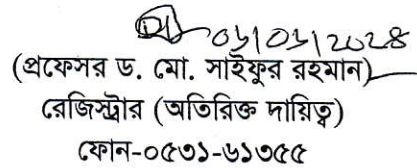 ০১/০১/২০২৪
(প্রফেসর ড. মো. সাইফুর রহমান)
রেজিস্ট্রার (অতিরিক্ত দায়িত্ব)
ফোন-০৫৩১-৬১৩৫৫